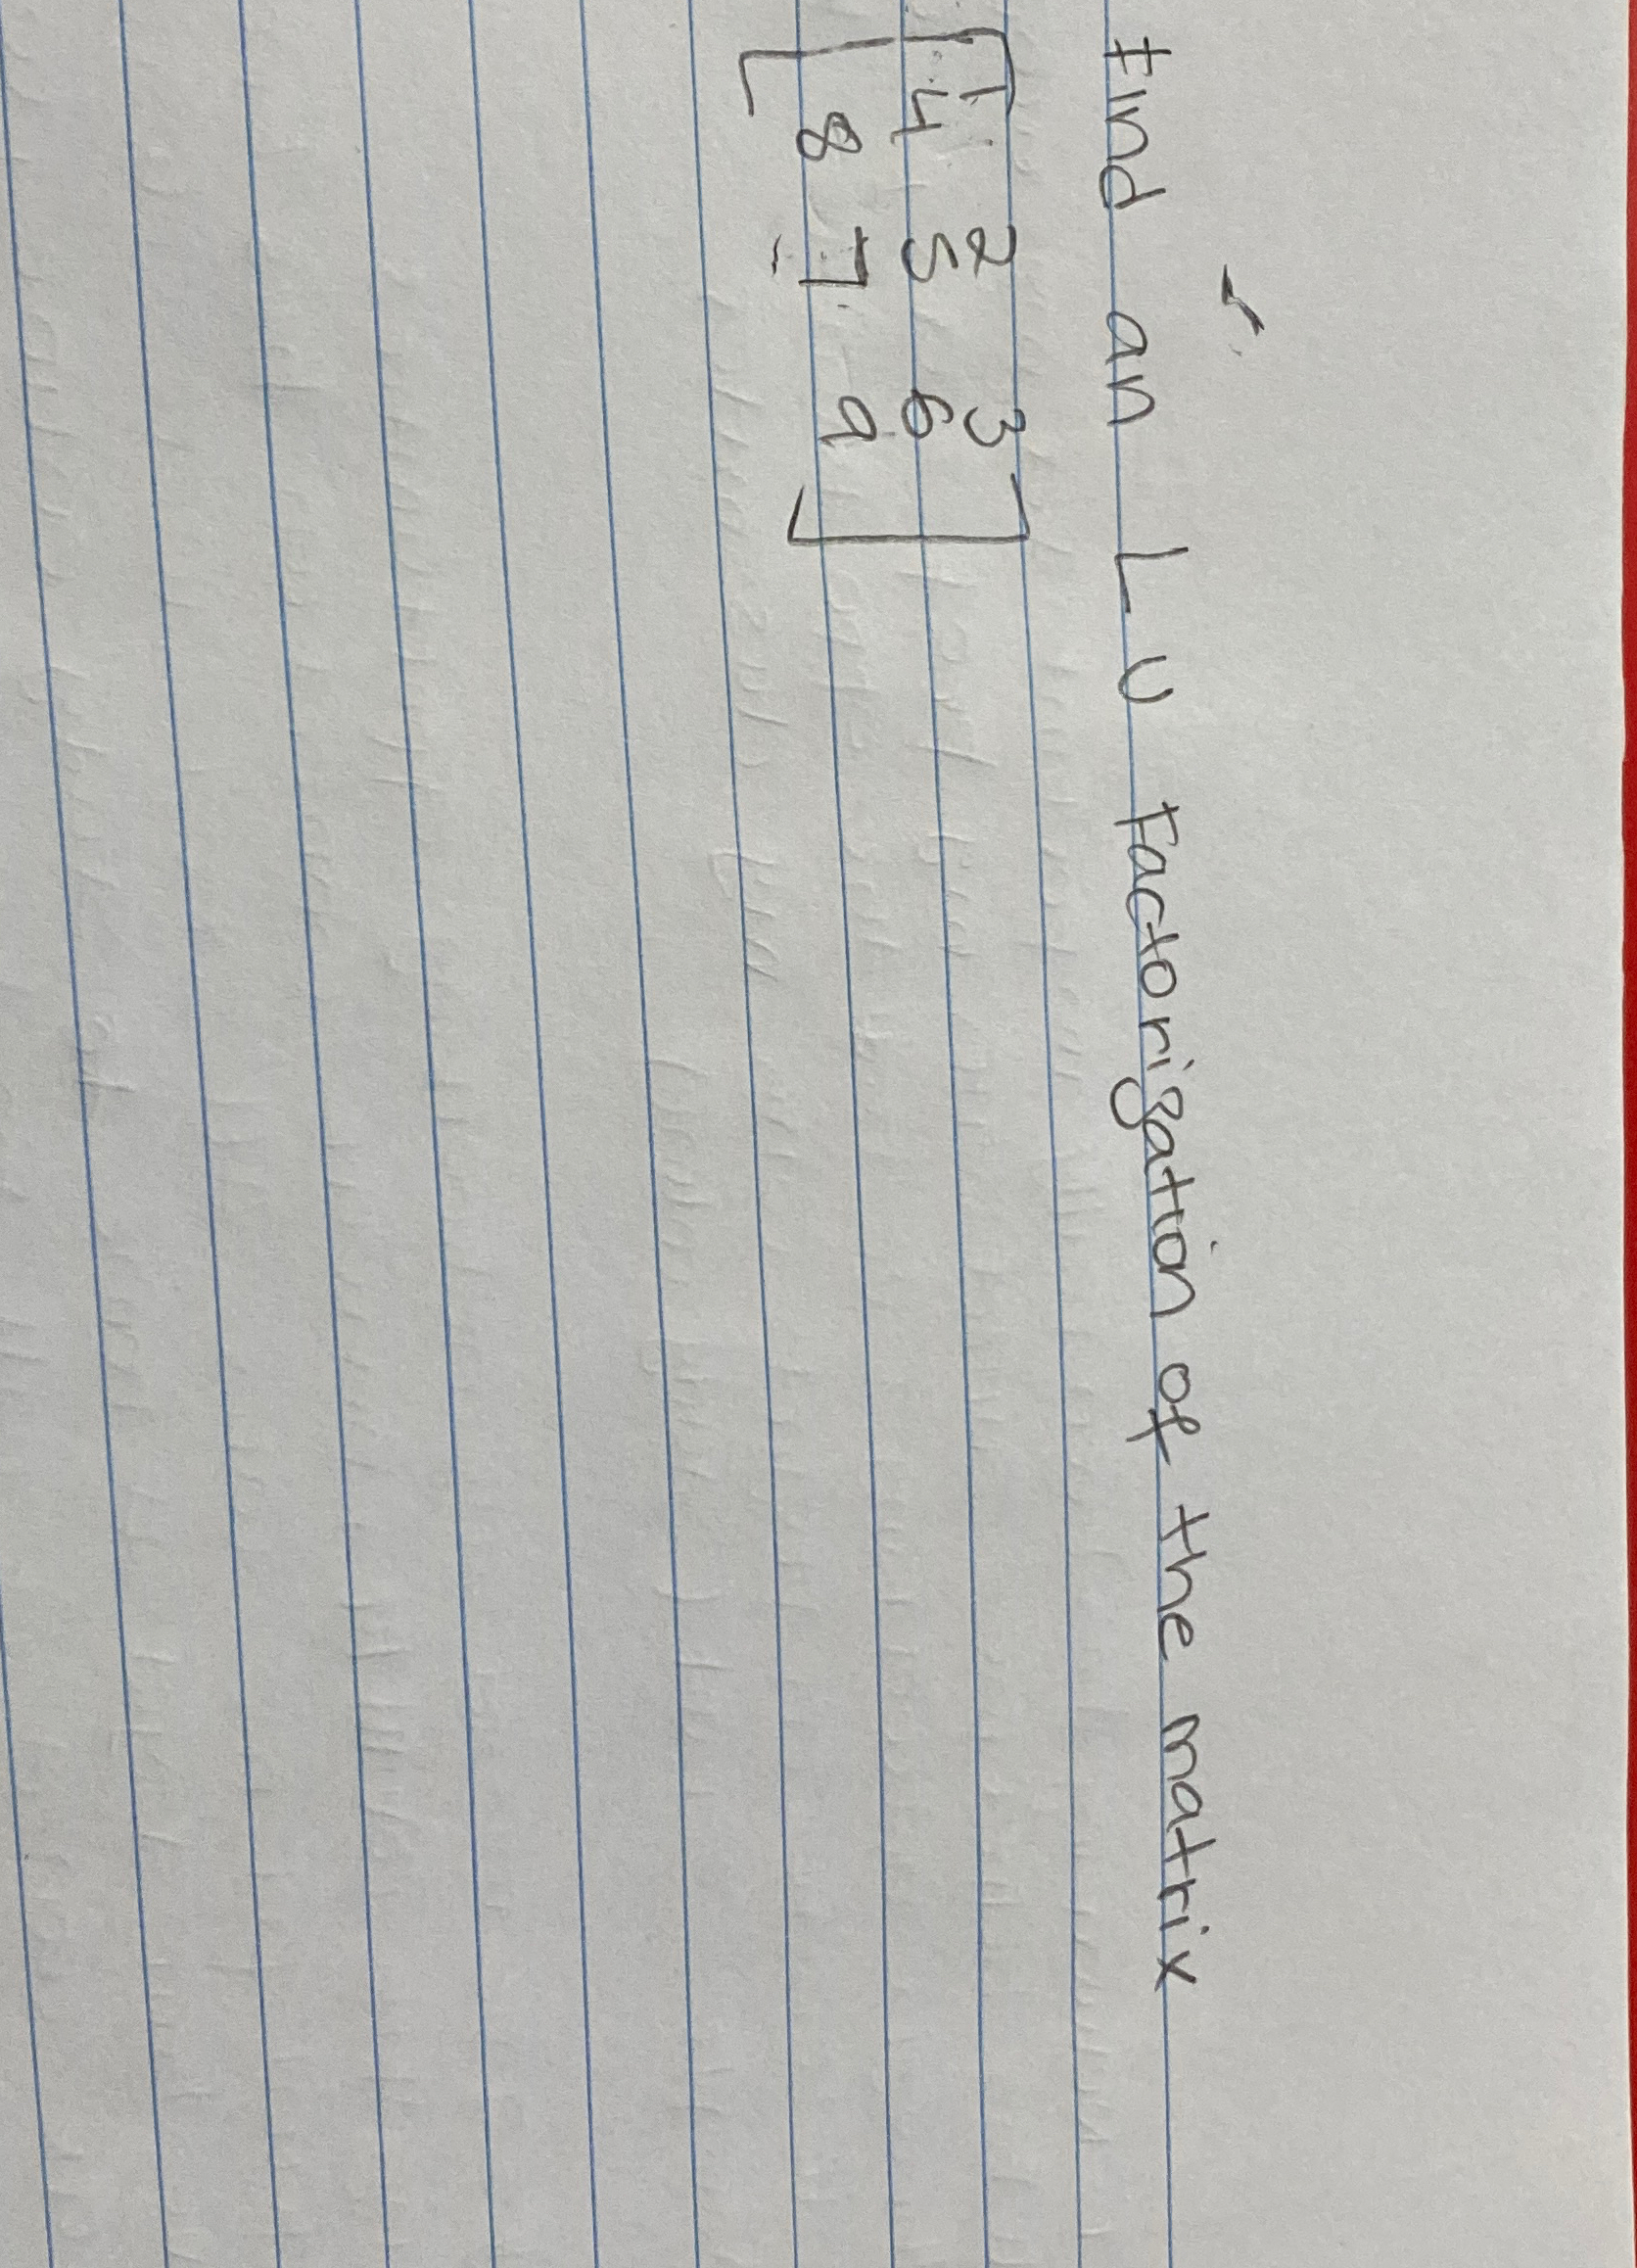 Find an LU Factorization of the matrix
1 2 3
4 5 6
8 7 9